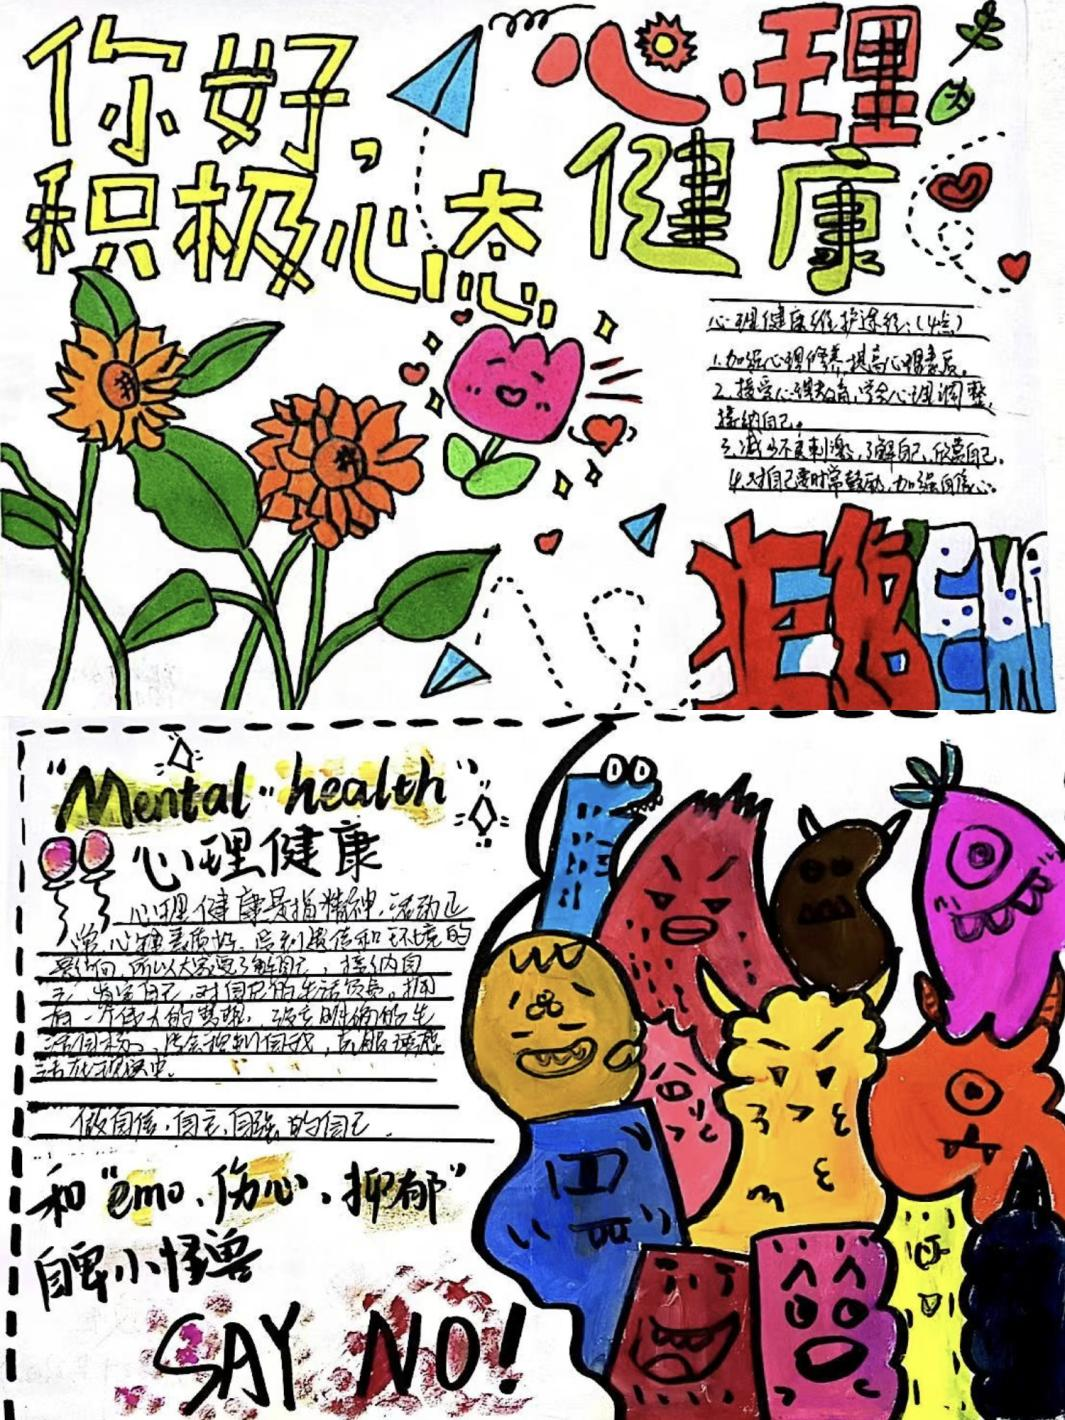 你好,
积极心态
心理
健康
心理健康维护途径:(4点)
1.加强心理修养,提高心理素质。
2.接受心理教育,学会心理调整,
接纳自己。
3.减少不良刺激,了解自己,欣赏自己。
4.对自己要时常鼓励,加强自信心。
拒绝EMO
"Mental health"
心理健康
心理健康是指精神、活动正
常、心理素质好。受到遗传和环境的
影响,所以大家要了解自己,接纳自
己,肯定自己,对自己的生活负责。拥
有一个伟大的梦想,
活在现实中。
做自信、自立、自强的自己.
和"emo、伤心、抑郁"
自卑小怪兽
SAY NO!